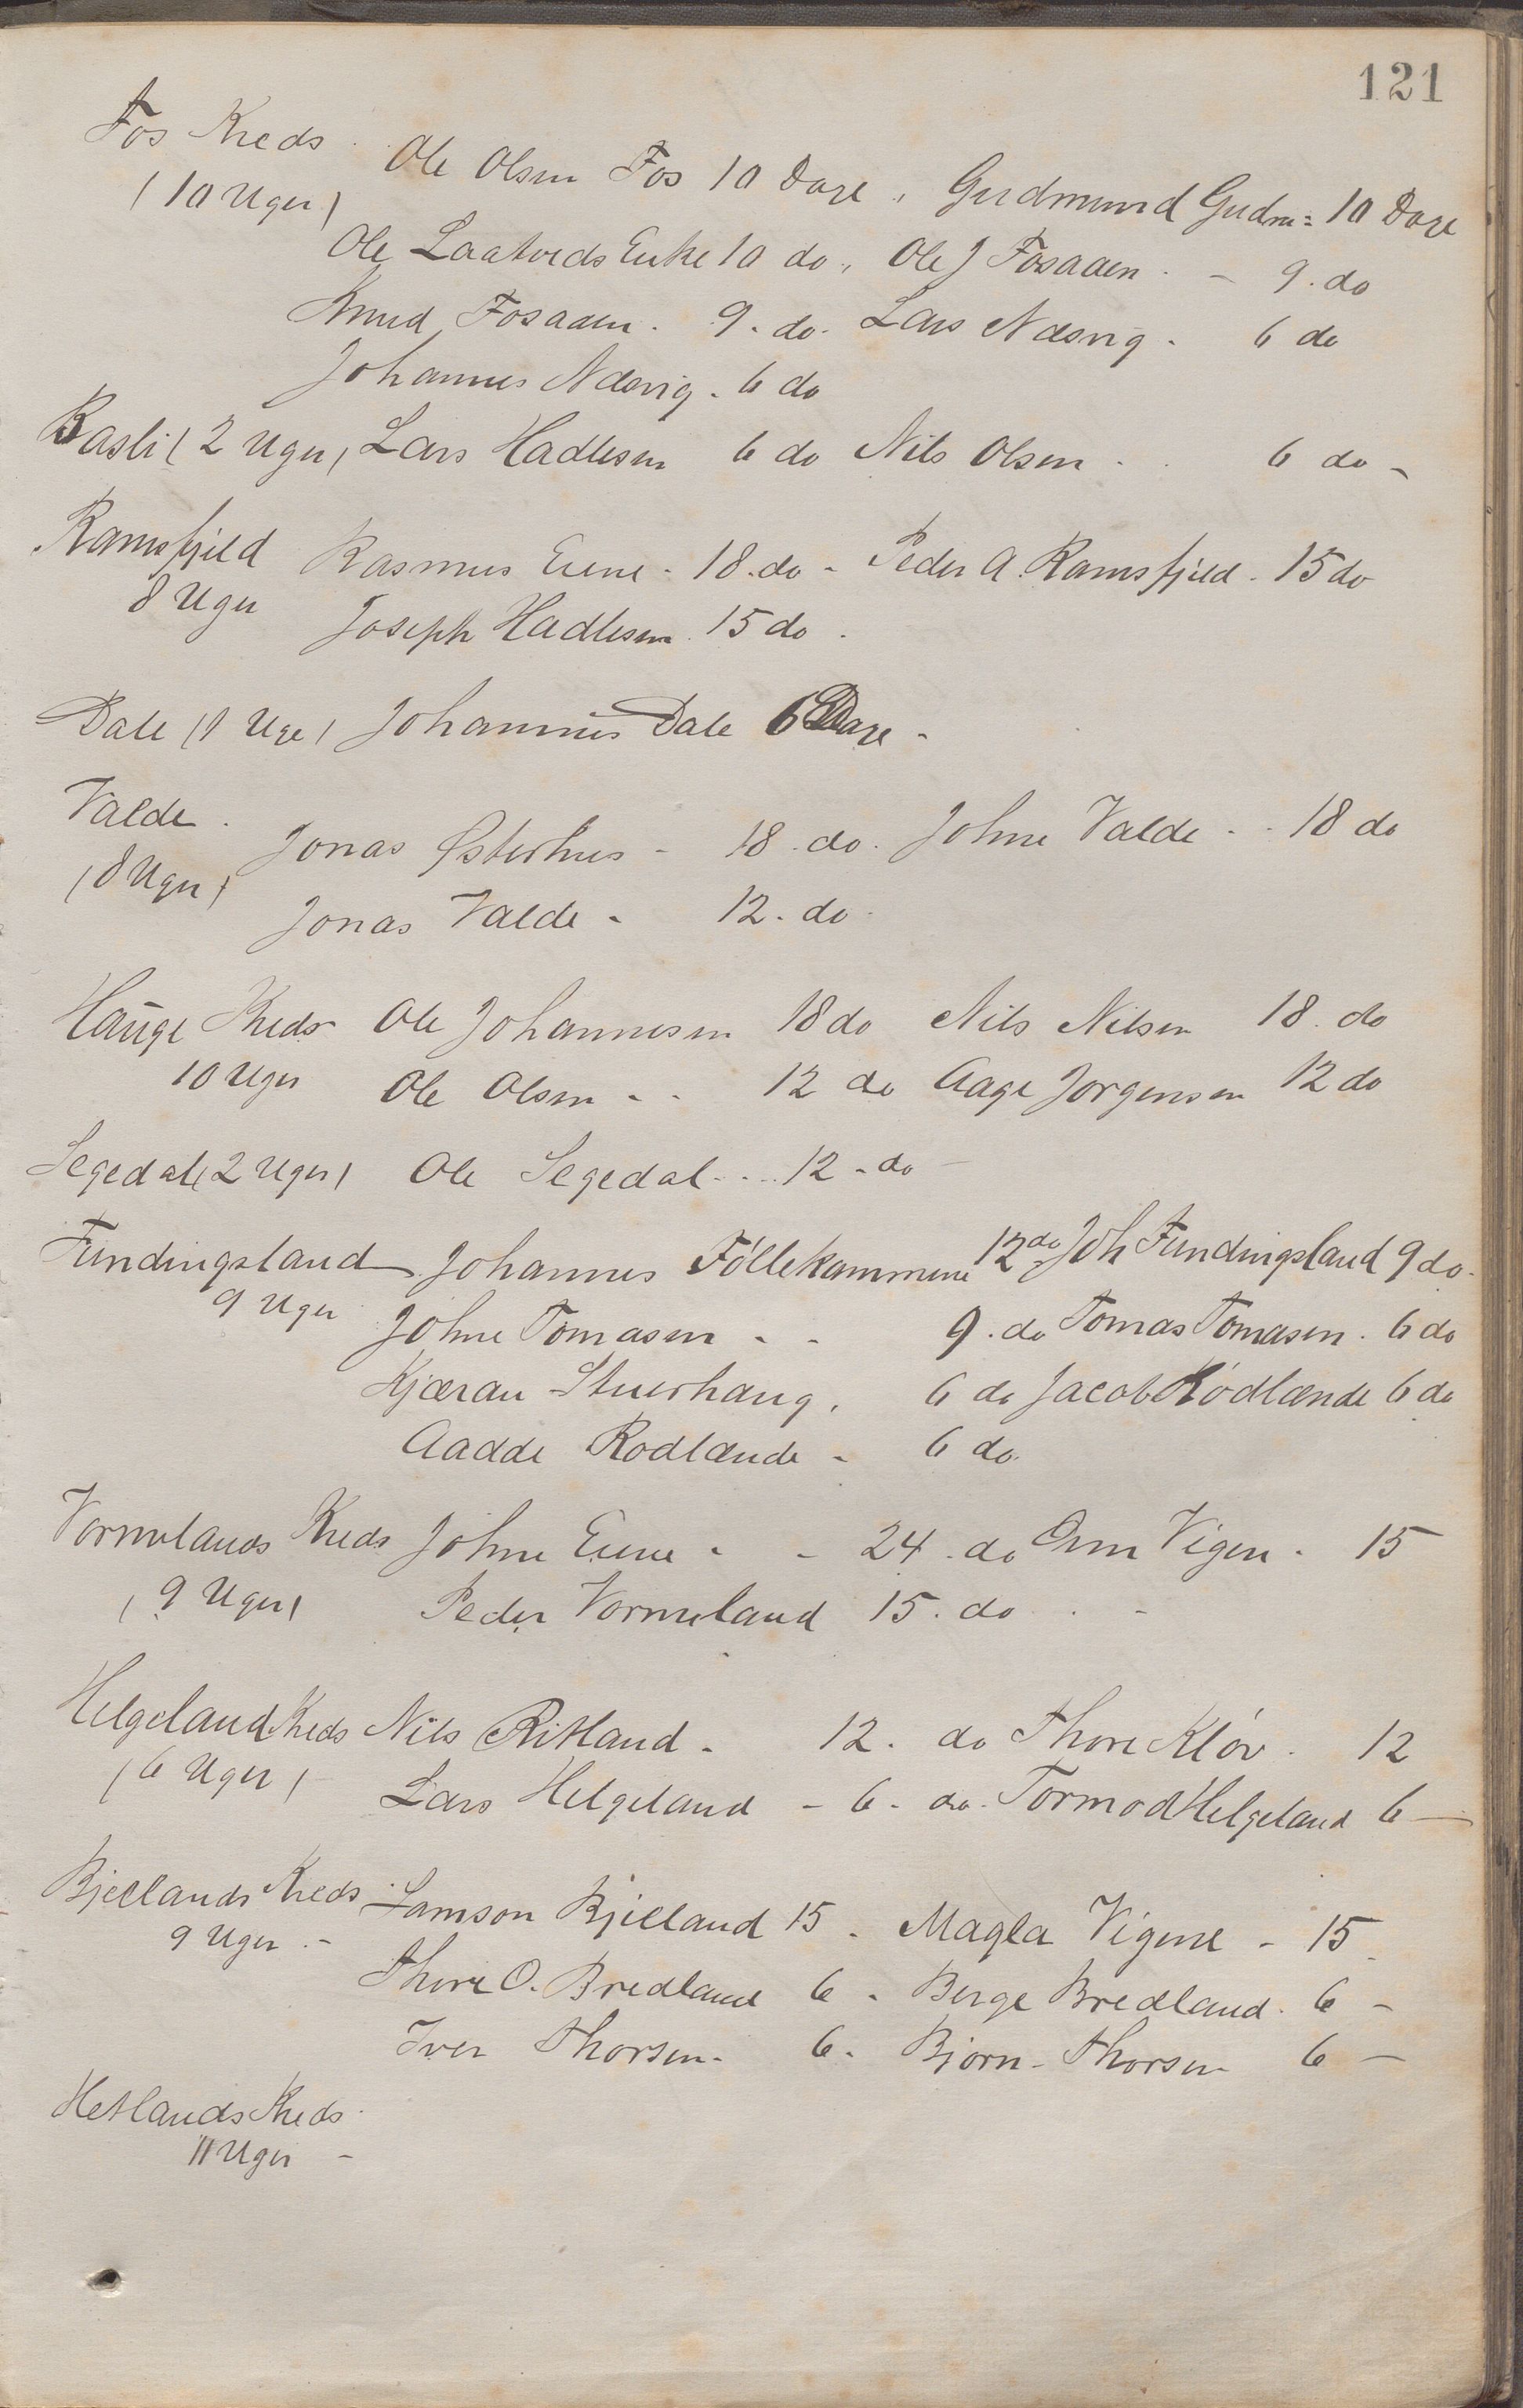 121
Fos Kreds. Ole Olsen Fos 10 Dage, Gudmund Gudm= 10 Dage
(10 Uger)
Ole Laatveds Enke 10 do, Ole J Fosaaen. - 9. do
Knud Fosaaen. 9. do. Lars Næsvig. 6 do
Johannes Næsvig. 6 do
Basli (2 Uger) Lars Hadlesen 6 do Nils Olsen. 6 do -
Ramsfjeld Rasmus Eiene. 18. do - Peder A. Ramsfjeld. 15 do
8 Uger Joseph Hadlesen. 15 do.
Dale (1 Uge) Johannes Dale 6 Dage -
Valde.
Jonas Østerhus - 18. do. Johne Valde - - 18 do
(8 Uger)
Jonas Valde - 12. do.
Hauge Kreds Ole Johannesen 18 do Nils Nilsen 18. do
10 Uger Ole Olsen - - 12 do Aage Jorgensen 12 do
Segedal (2 Uger) Ole Segedal - - 12 - do
Fundingsland Johannes Föllekammene 12 do Joh Fundingsland 9 do.
9 Uger Johne Tomasen - - 9. do Tomas Tomasen. 6 do
Kjæran Stuerhaug, 6 do Jacob Rödlænde 6 do
Aadde Rodlænde - 6 do.
Vormelands Kreds Johne Eiene - - 24. do Orm Vigen - 15
(9 Uger) Peder Vormeland 15. do. -
Helgeland Kreds Nils Ritland - 12. do Thore Klöv. 12
(6 Uger) Lars Helgeland - 6 - do. Tormod Helgeland 6 —
Bjellands Kreds Samson Bjelland 15 - Magla Vigene - 15 -
9 Uger. -
Thore O. Bredland 6 - Berge Bredland. 6 -
Iver Thorsen - 6 - Bjorn - Thorsen 6 —
Hetlands Kreds.
11 Uger -